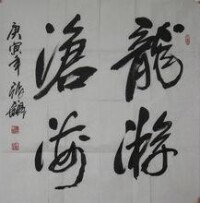 龍游
滄海
庚寅年